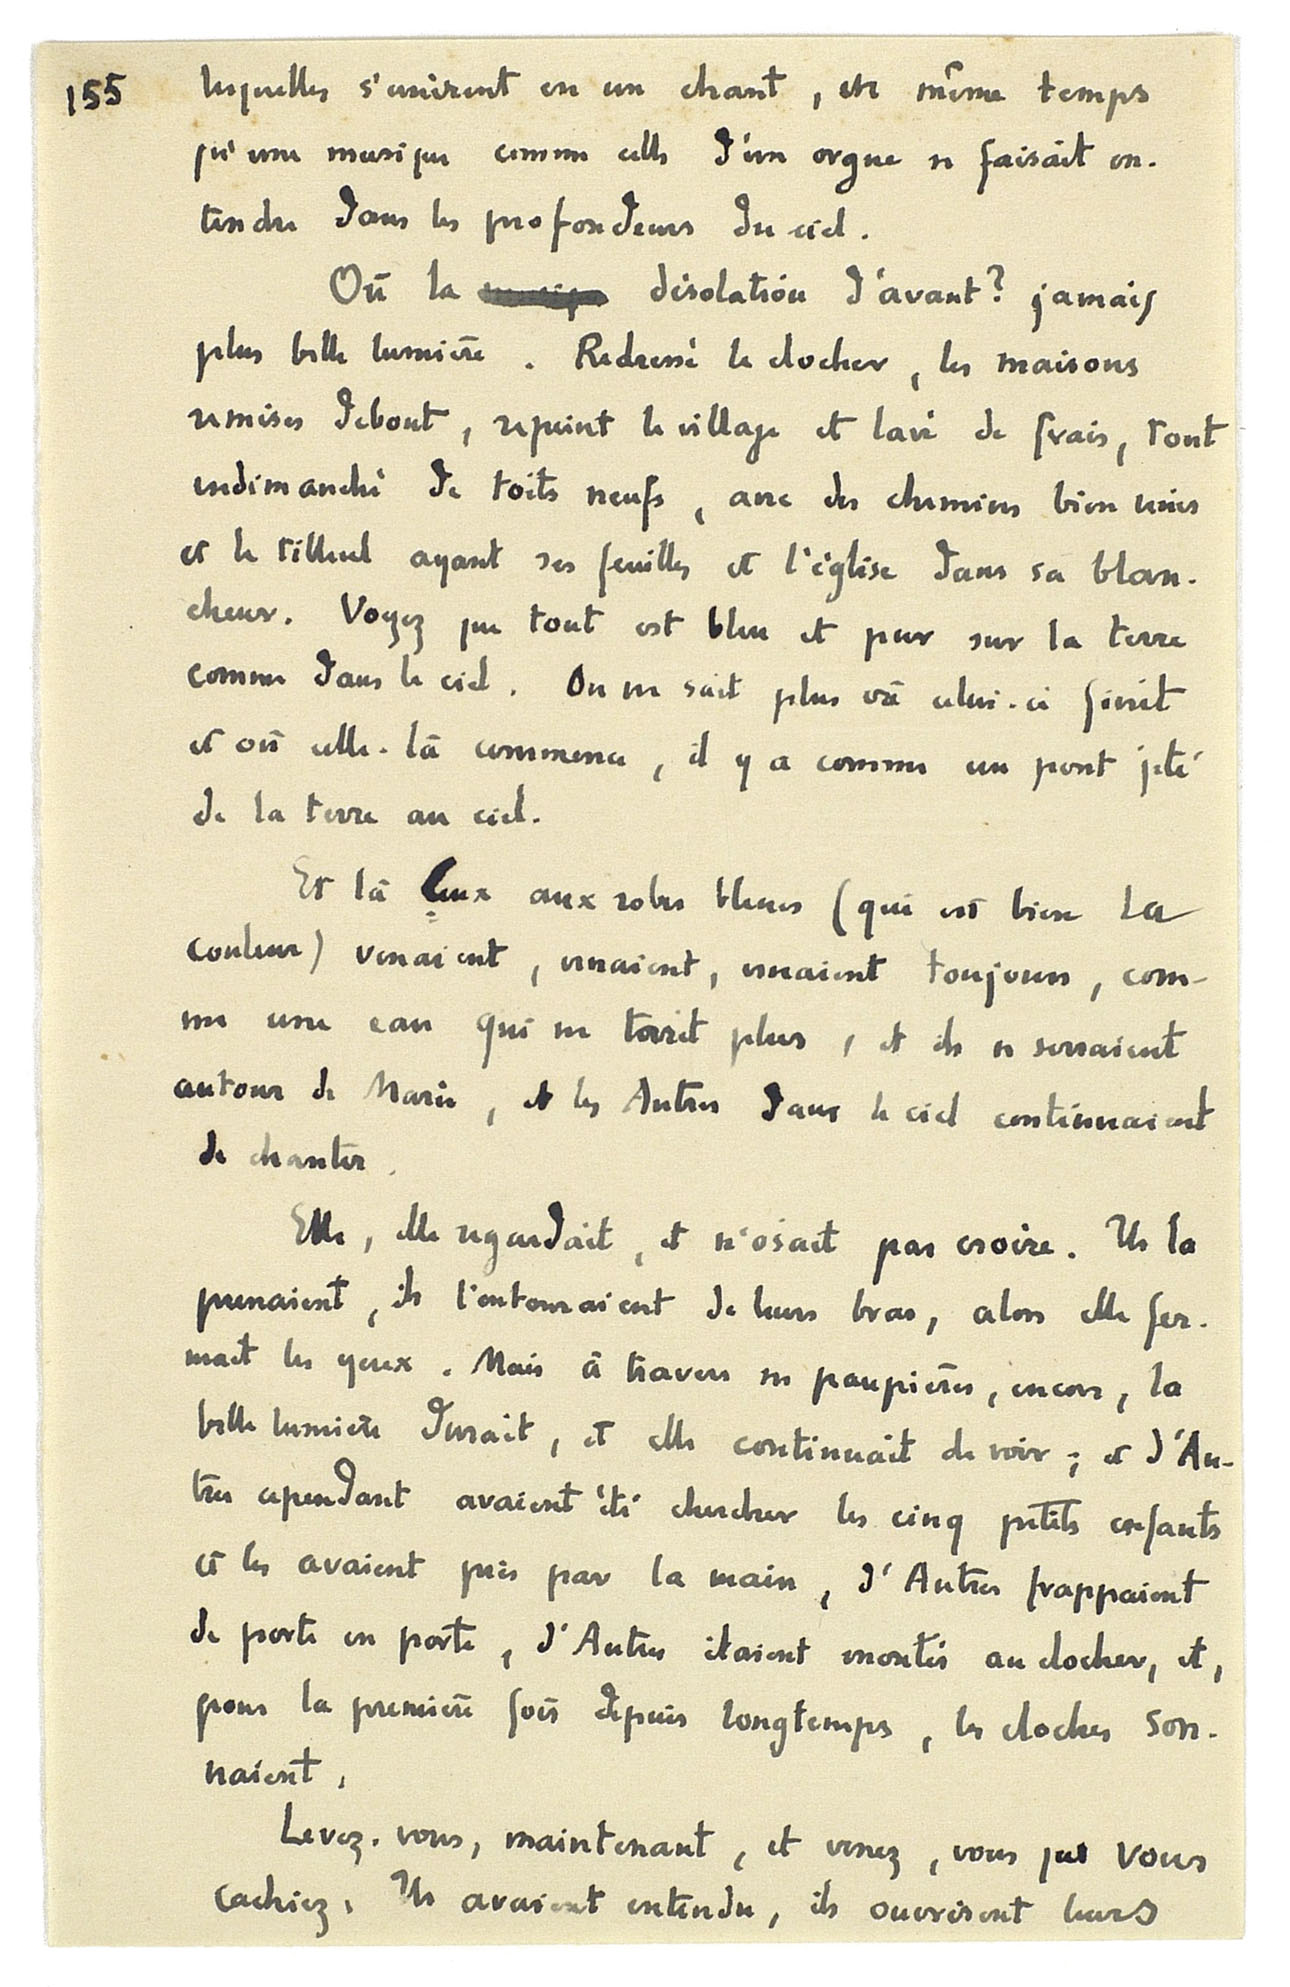 155
lesquelles s'unirent en un chant, en même temps
qu'une musique comme celle d'un orgue se faisait en-
tendre dans les profondeurs du ciel.
Où la désolation d'avant? jamais
plus belle lumière. Redressé le clocher, les maisons
remises debout, repeint le village et lavé de frais, tout
endimanché de toits neufs, avec des chemins bien unis
et le tilleul ayant ses feuilles et l'église dans sa blan-
cheur. Voyez que tout est bleu et pur sur la terre
comme dans le ciel. On ne sait plus où celui-ci finit
et où celle-là commence, il y a comme un pont jeté
de la terre au ciel.
Et là Ceux aux robes bleues (qui est bien la
couleur) venaient, venaient, venaient toujours, com-
me une eau qui ne tarit plus, et ils se serraient
autour de Marie, et les Autres dans le ciel continuaient
de chanter.
Elle, elle regardait, et n'osait pas croire. Ils la
prenaient, ils l'entouraient de leurs bras, alors elle fer-
mait les yeux. Mais à travers ses paupières, encore, la
belle lumière durait, et elle continuait de voir; et d'Au-
tres cependant avaient été chercher les cinq petits enfants
et les avaient pris par la main, d'Autres frappaient
de porte en porte, d'Autres étaient montés au clocher, et,
pour la première fois depuis longtemps, les cloches son-
naient.
Levez-vous, maintenant, et venez, vous qui vous
cachiez. Ils avaient entendu, ils ouvrirent leurs